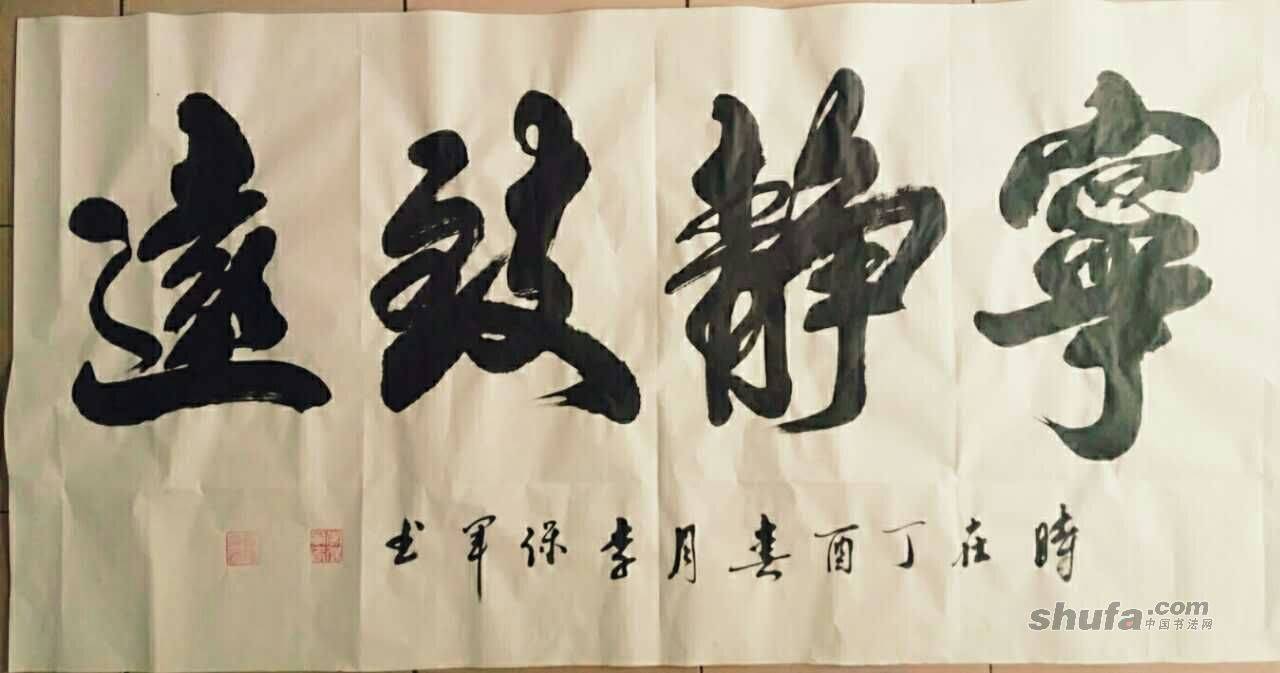 寧靜致遠
時在丁酉春月李保軍书
shufa.com
中国书法网